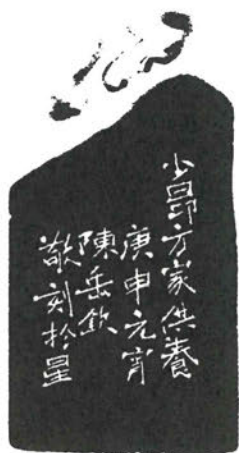 少昂方家供養
庚申元宵
陳岳欽
敬刻於星